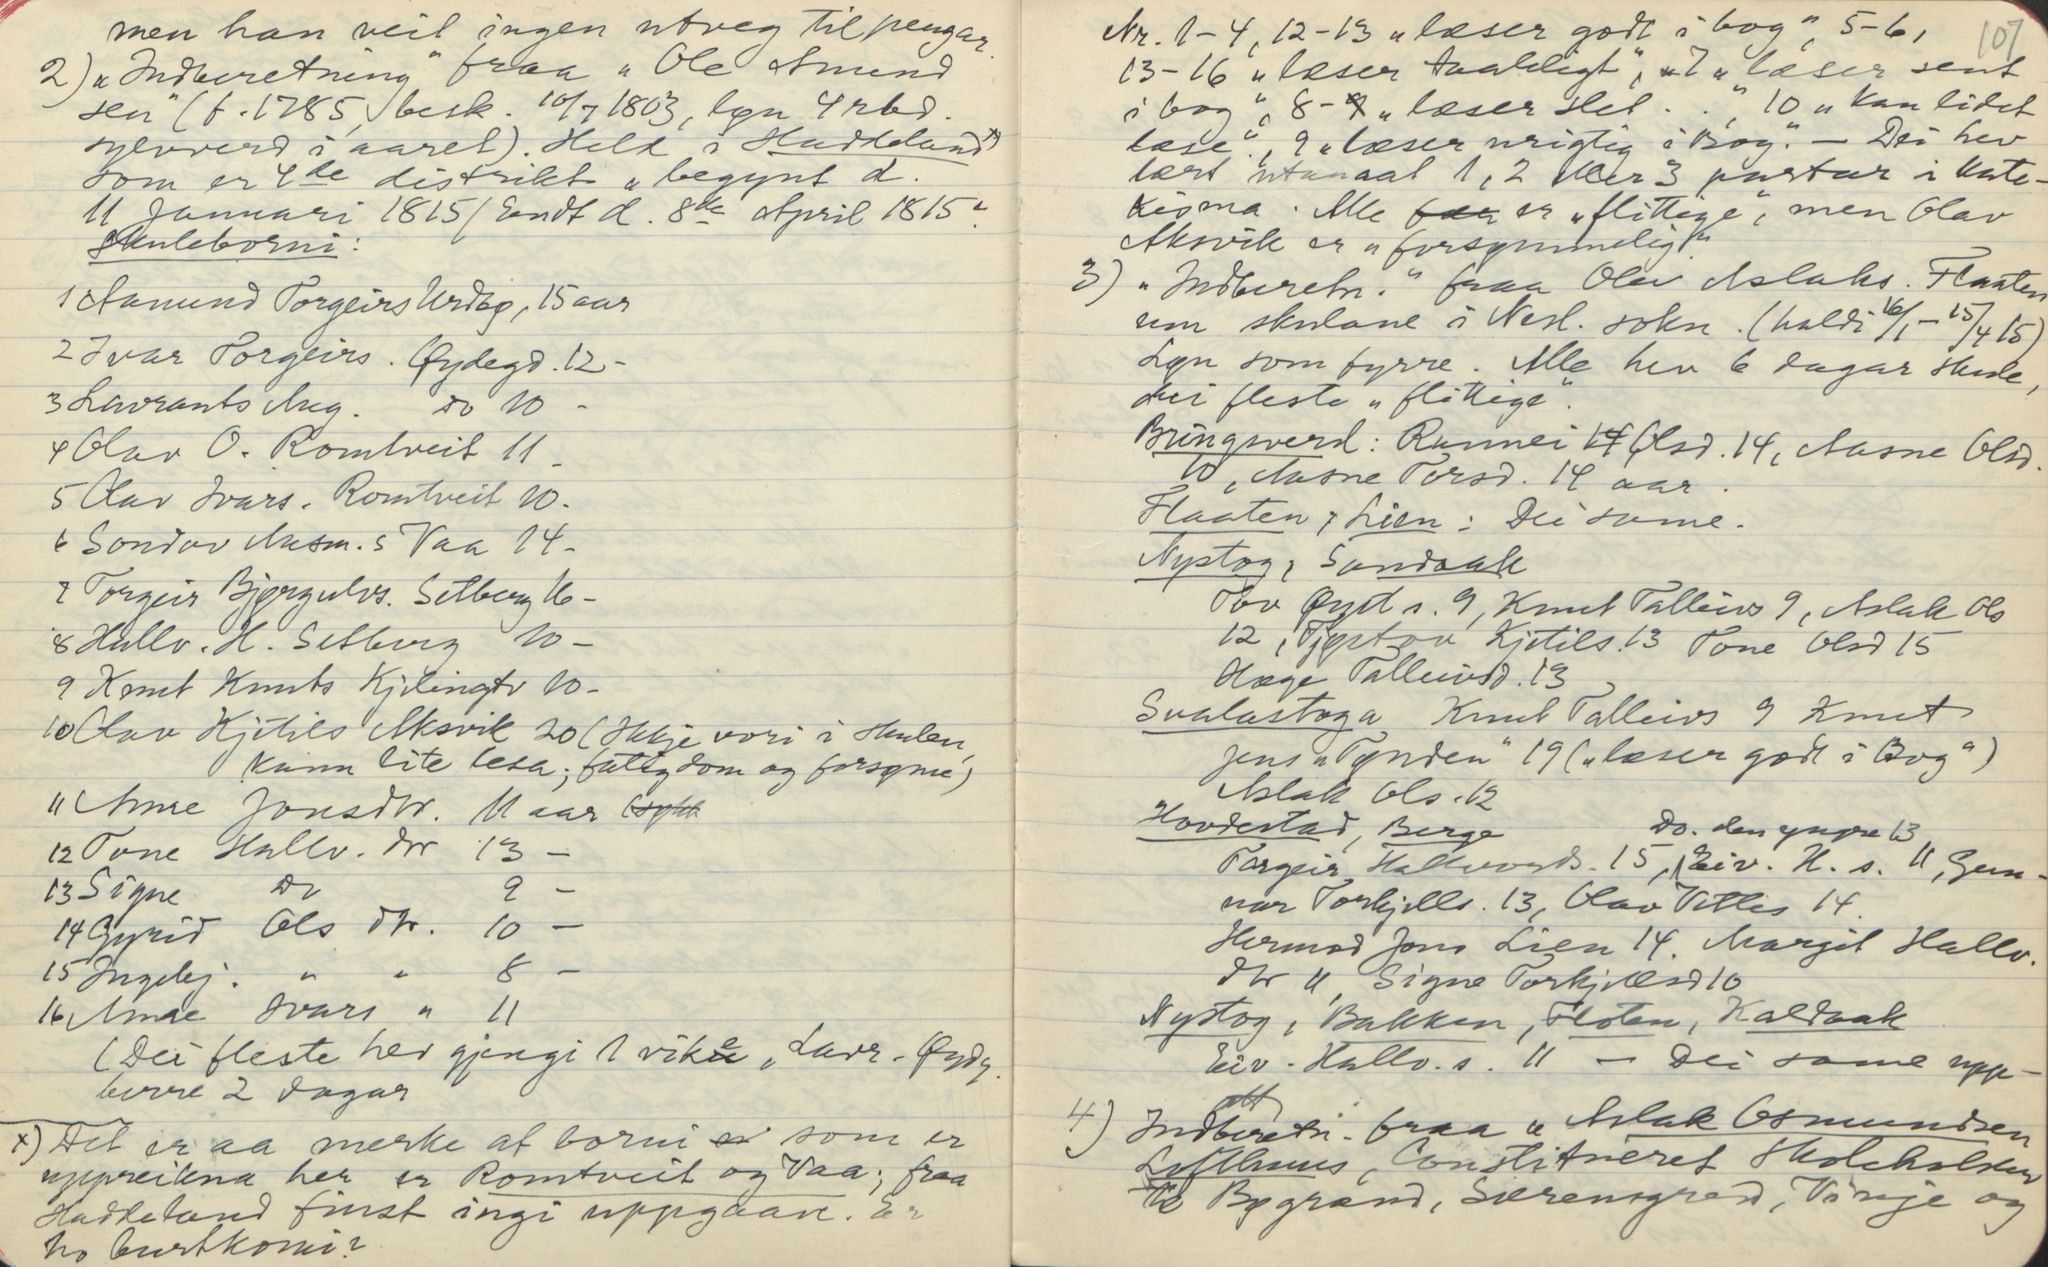 men han veit ingen utveg til pengar.
2) „Indberetning" fraa „Ole Amund
sen" (f. 1785, besk. 10/7 1803, løn 4 rbd.
sylvverd i aaret). Held i Haddeland x)
som er 4de distrikt „begynt d.
11 Januari 1815 / Endt d. 8de April 1815"
Skuleborni:
1 Aamund Torgeirs Urdbø, 15 aar
2 Ivar Torgeirs. Øydegd. 12 -
3 Lavrants Aug. do 10 -
4 Olav O. Romtveit 11 -
5 Olav Ivars. Romtveit 10.
6 Sondov Aasm. s Vaa 14 -
7 Torgeir Bjørgulvs. Setberg 16 -
8 Hallv. H. Setberg 10 -
9 Knut Knuts Kjilingtv 10 -
10 Olav Kjetils Aksvik 20 (Ikkje vori i skulen,
kann lite lesa; fattigdom og forsøme)
11 Anne Jonsdtr. 11 aar
12 Tone Hallv. dtr 13 -
13 Signe Do 9 -
14 Gyrid Ols dtr. 10 -
15 Ingebj. " " 8 -
16 Anne Ivars " 11
(Dei fleste hev gjengi 1 vike, Lavr. Øydg.
berre 2 dagar
x) Det er aa merke at borni som er
uppreikna her er Romtveit og Vaa; fraa
Haddeland finst ingi uppgaave. Er
ho burtkomi?
107
Nr. 1-4, 12-13 „læser godt i bog", 5-6,
13-16 „læser taaleligt", 7 „læser sent
i bog", 8 „læser slet . . " 10 „kan lidet
læse", 9 „læser urigtig i Bog." — Dei hev
lært utanaat 1, 2 eller 3 partar i kate-
kisma. Alle er „flittige", men Olav
Aksvik er „forsymmelig"
3) „Indberetn." fraa Olav Aslaks. Flaaten
um skulane i Nesl. sokn. (haldi 16/1 - 15/4 15)
Løn som fyrre. Alle hev 6 dagar skule,
dei fleste „flittige".
Bringsverd: Runnei Olsd. 14, Aasne Olsd.
10, Aasne Torsd. 14 aar.
Flaaten, Lien: Dei same.
Nystog, Sandaak
Tov Øyst s. 9, Knut Talleivs 9, Aslak Ols
12, Tjøstov Kjetils. 13 Tone Olsd 15
Hæge Talleivsd. 13
Svalastoga Knut Talleivs 9 Knut
Jens „Tynden" 19 („læser godt i Bog")
Aslak Ols. 12
Hovdestad, Berge Do. den yngre 13
Torgeir Hallvords. 15, Eiv. H. s. 11, Gun-
nar Torkjells. 13, Olav Vetles 14.
Hermod Jons Lien 14. Margit Hallv.
dtr 11, Signe Torkjellsd 10
Nystog, Bakken, Floten, Kaldaak
Eiv. Hallv. s. 11 — Dei same upp-
att
4) Indberetn. fraa „Aslak Osmundsen
Lofthuus, Constitueret Skoleholder
Bøgrand, Særensgrend, Vinje og